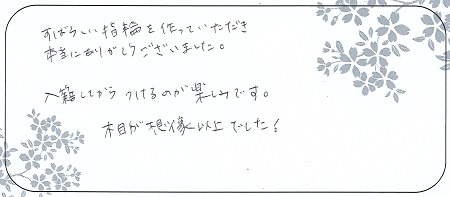 すばらしい指輪を作っていただき
本当にありがとうございました。
入籍してからつけるのが楽しみです。
木目が想像以上でした!